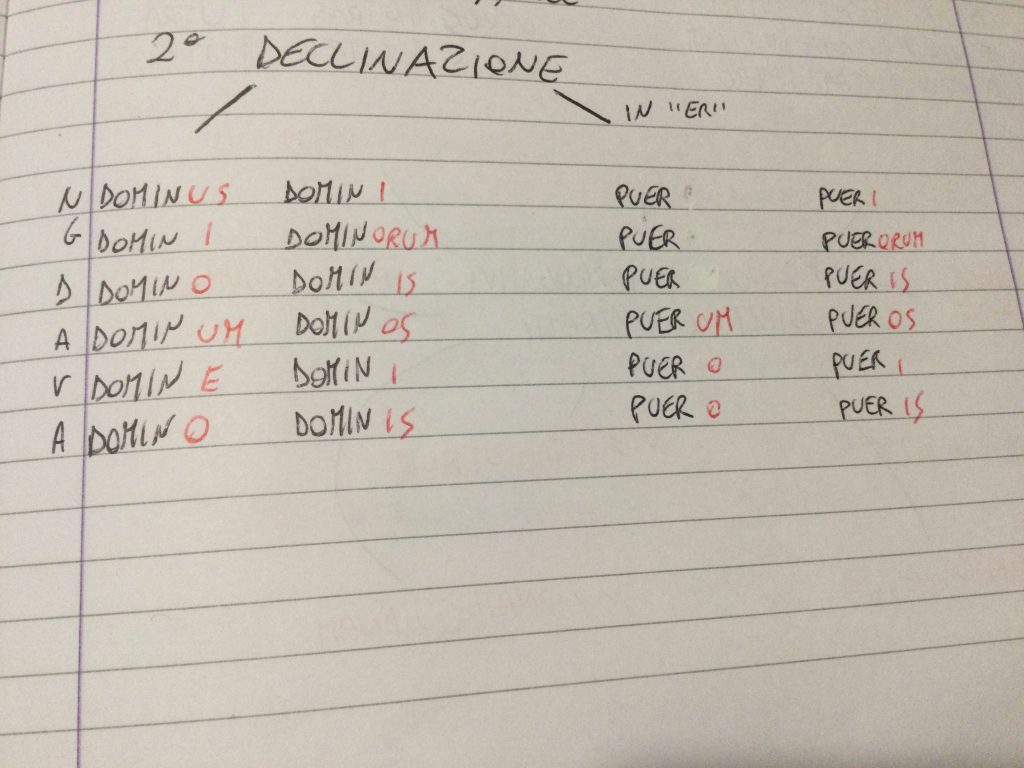 2° DECLINAZIONE
IN "ER"
N DOMINUS DOMIN I PUER PUER I
G DOMIN I DOMINORUM PUER PUERORUM
D DOMIN O DOMIN IS PUER PUER IS
A DOMIN UM DOMIN OS PUER UM PUER OS
V DOMIN E DOMIN I PUER O PUER I
A DOMIN O DOMIN IS PUER O PUER IS